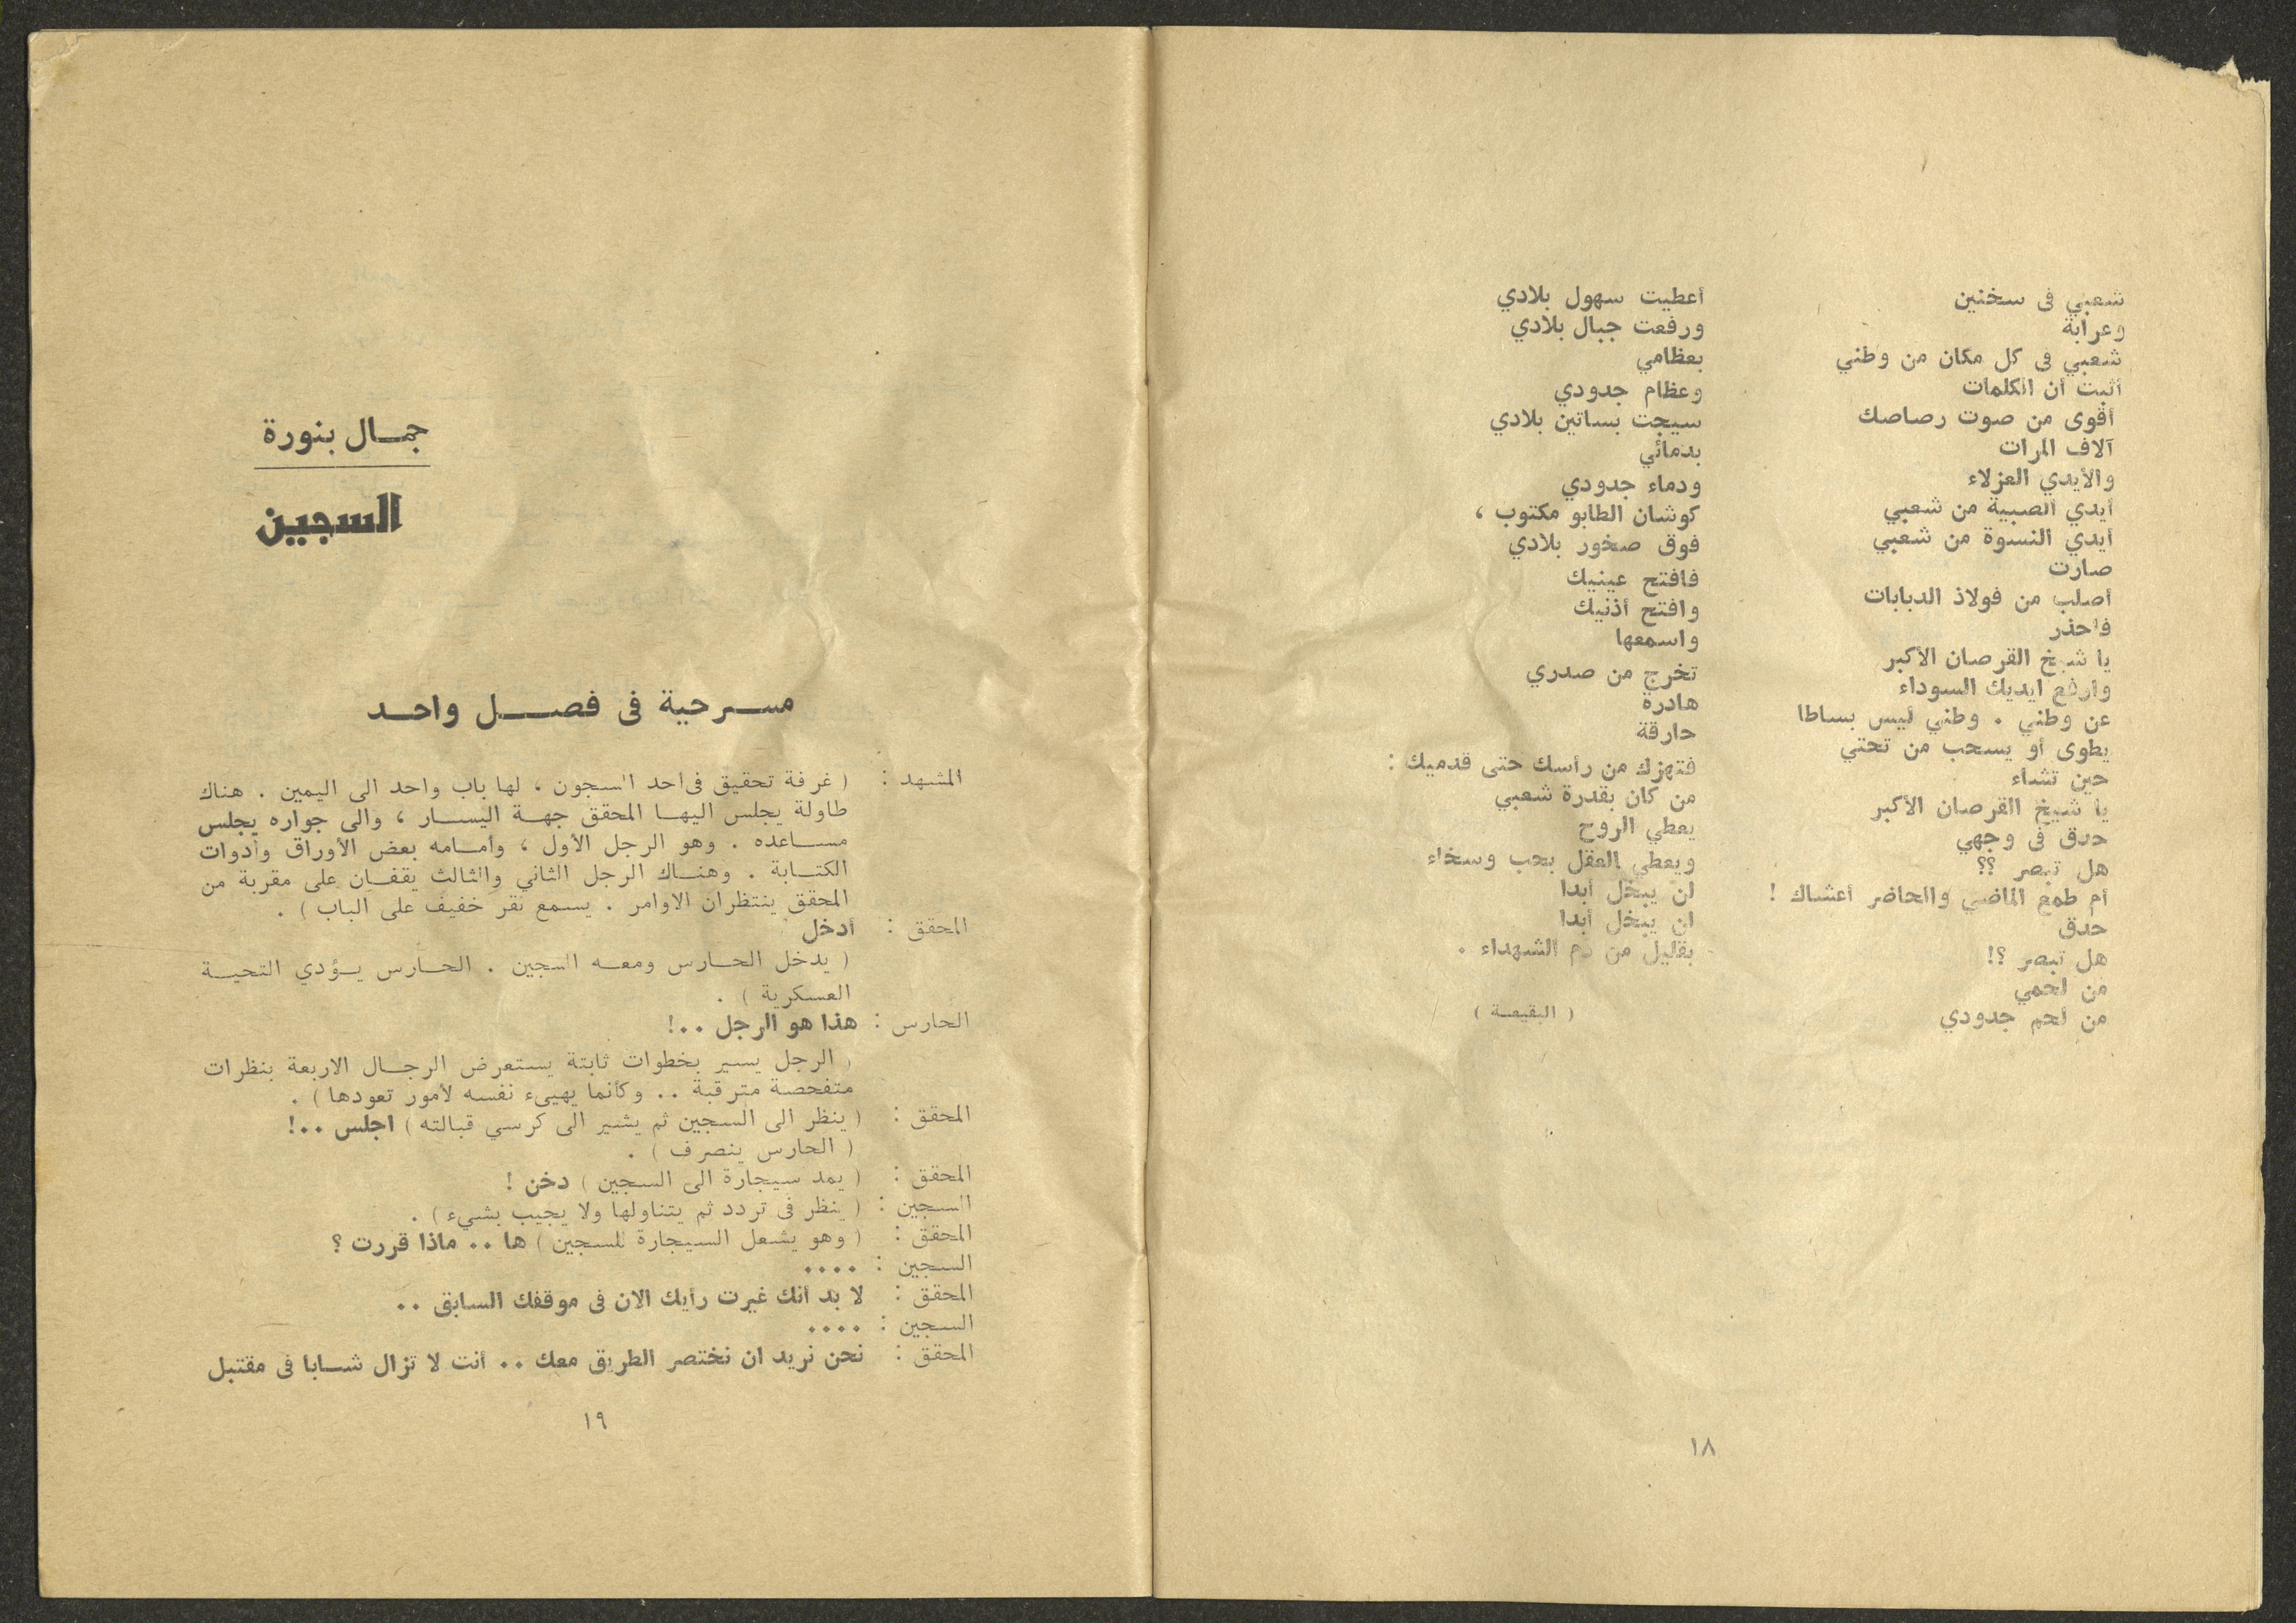 شعبي فى سخنين
وعرابة
شعبي فى كل مكان من وطني
أثبت أن الكلمات
أقوى من صوت رصاصك
آلاف المرات
والأيدي العزلاء
أيدي الصبية من شعبي
أيدي النسوة من شعبي
صارت
أصلب من فولاذ الدبابات
فاحذر
يا شيخ القرصان الأكبر
وارفع ايديك السوداء
عن وطني . وطني ليس بساطا
يطوى أو يسحب من تحتي
حين تشاء
يا شيخ القرصان الأكبر
حدق فى وجهي
هل تبصر ؟؟
أم طمع الماضي والحاضر أعشاك !
حدق
هل تبصر ؟!
من لحمي
من لحم جدودي
أعطيت سهول بلادي
ورفعت جبال بلادي
بعظامي
وعظام جدودي
سيجت بساتين بلادي
بدمائي
ودماء جدودي
كوشان الطابو مكتوب ،
فوق صخور بلادي
فافتح عينيك
وافتح أذنيك
واسمعها
تخرج من صدري
هادرة
حارقة
فتهزك من رأسك حتى قدميك :
من كان بقدرة شعبي
يعطي الروح
ويعطي العقل بحب وسخاء
لن يبخل أبدا
لن يبخل أبدا
بقليل من دم الشهداء .
( البقيعة )
١٨
جمال بنورة
السجين
مسرحية فى فصل واحد
المشهد : ( غرفة تحقيق فى احد السجون ، لها باب واحد الى اليمين . هناك
طاولة يجلس اليها المحقق جهة اليسار ، والى جواره يجلس
مساعده . وهو الرجل الأول ، وأمامه بعض الأوراق وأدوات
الكتابة . وهناك الرجل الثاني والثالث يقفان على مقربة من
المحقق ينتظران الاوامر . يسمع نقر خفيف على الباب ) .
المحقق : أدخل
( يدخل الحارس ومعه السجين . الحارس يؤدي التحية
العسكرية ) .
الحارس : هذا هو الرجل ..!
( الرجل يسير بخطوات ثابتة يستعرض الرجال الاربعة بنظرات
متفحصة مترقبة .. وكأنما يهيىء نفسه لأمور تعودها ) .
المحقق : ( ينظر الى السجين ثم يشير الى كرسي قبالته ) اجلس ..!
( الحارس ينصرف ) .
المحقق : ( يمد سيجارة الى السجين ) دخن !
السجين : ( ينظر فى تردد ثم يتناولها ولا يجيب بشيء ) .
المحقق : ( وهو يشعل السيجارة للسجين ) ها .. ماذا قررت ؟
السجين : ....
المحقق : لا بد أنك غيرت رأيك الان فى موقفك السابق ..
السجين : ....
المحقق : نحن نريد ان نختصر الطريق معك .. أنت لا تزال شابا فى مقتبل
١٩